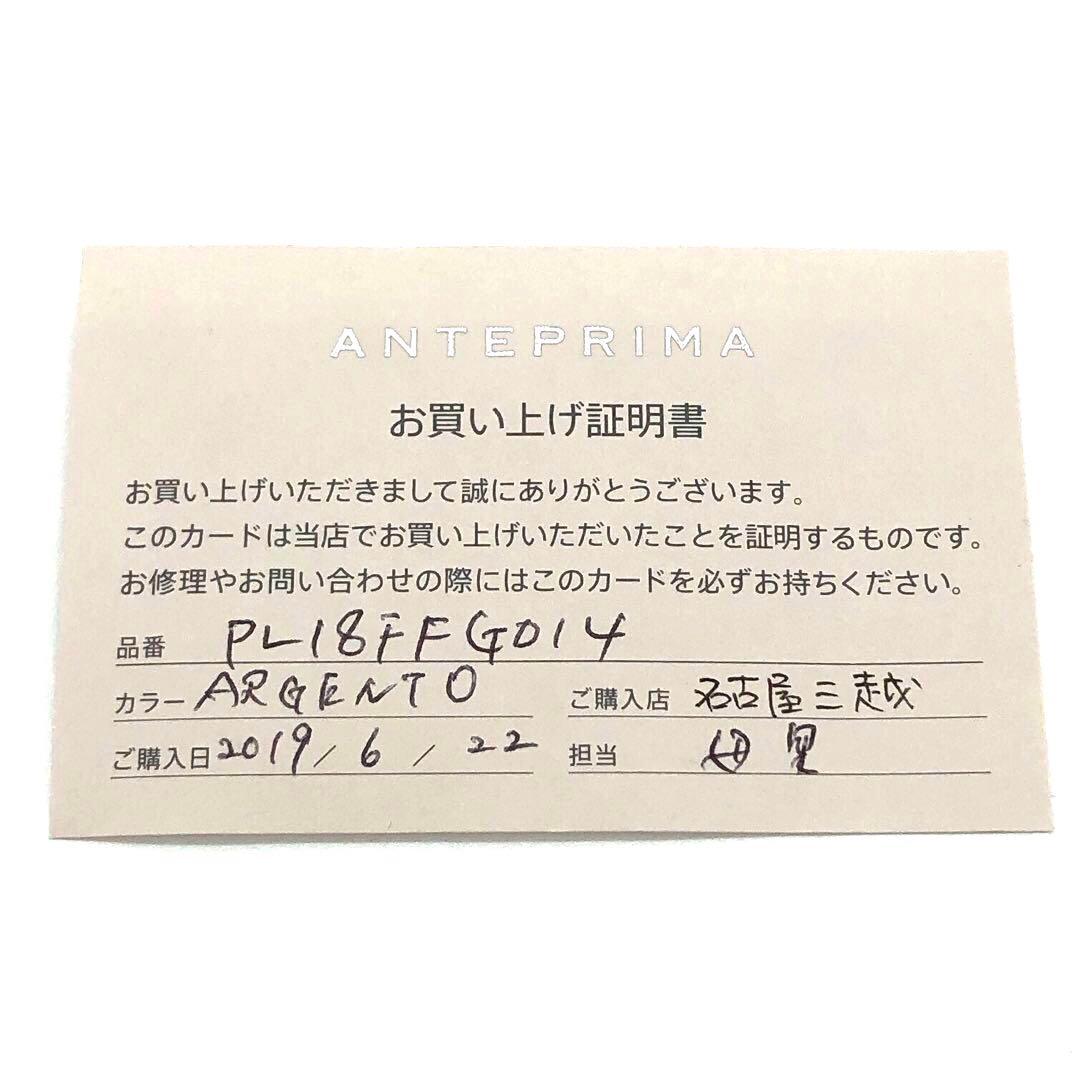 ANTEPRIMA
お買い上げ証明書
お買い上げいただきまして誠にありがとうございます。
このカードは当店でお買い上げいただいたことを証明するものです。
お修理やお問い合わせの際にはこのカードを必ずお持ちください。
品番 PL18FFG014
カラー ARGENTO ご購入店 名古屋三越
ご購入日 2019/6/22 担当